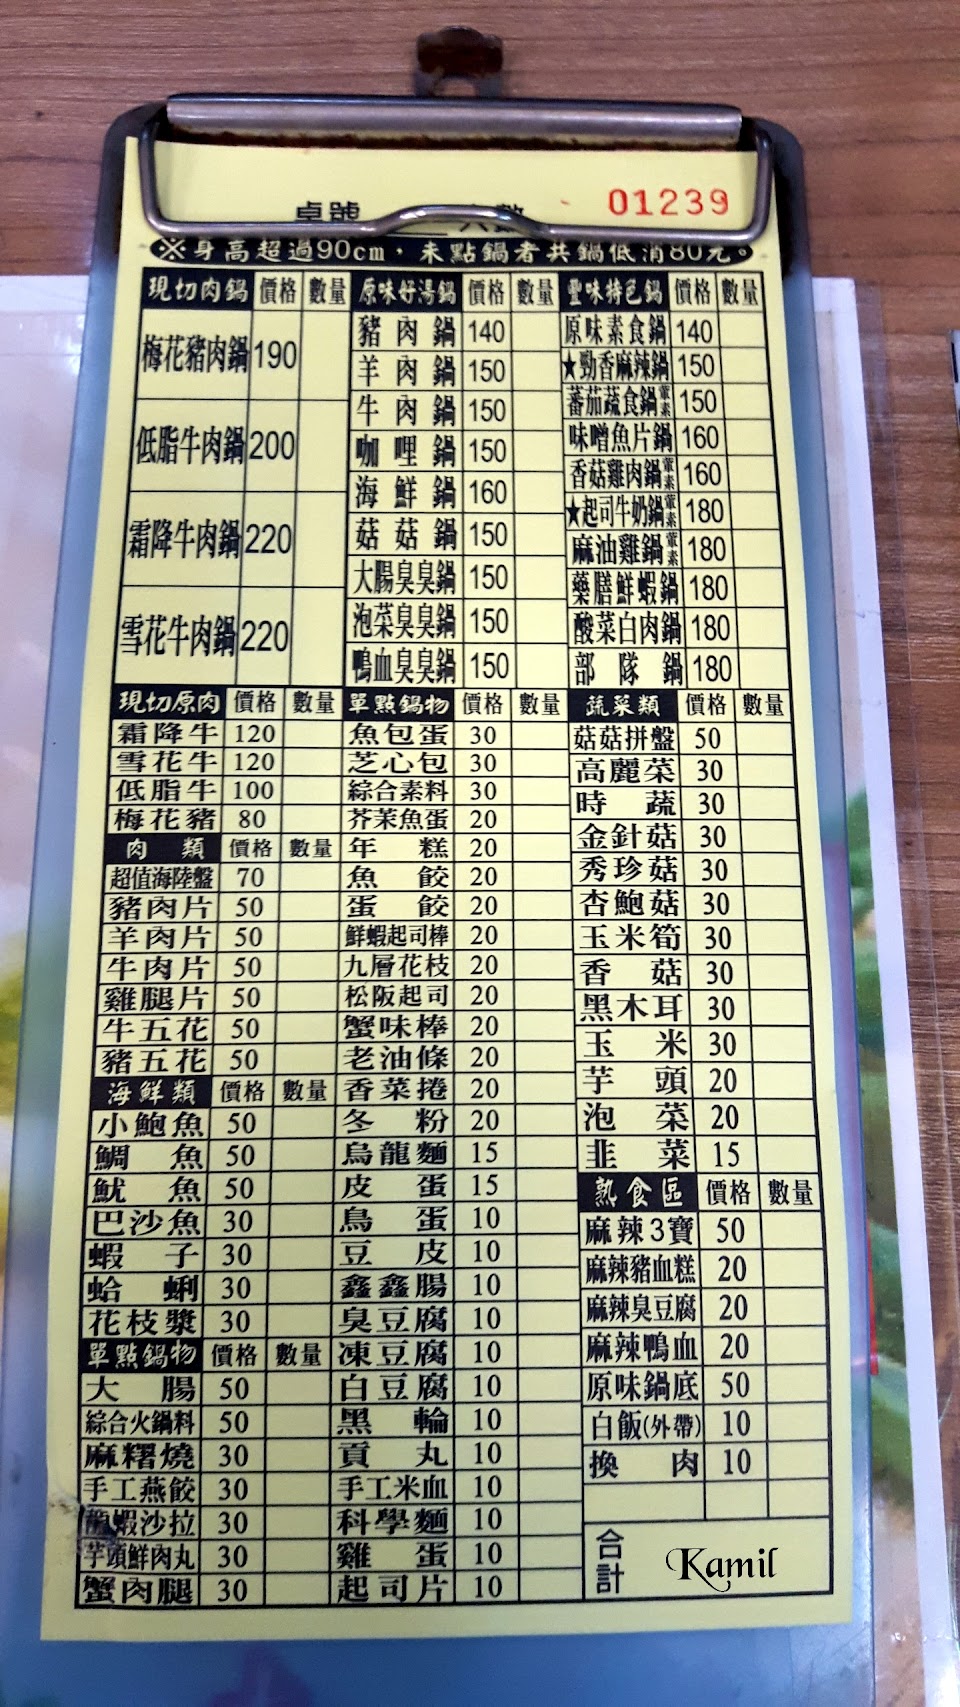 桌號 01239
※身高超過90cm，未點鍋者共鍋低消80元。
現切肉鍋 價格 數量
梅花豬肉鍋 190
低脂牛肉鍋 200
霜降牛肉鍋 220
雪花牛肉鍋 220
現切原肉 價格 數量
霜降牛 120
雪花牛 120
低脂牛 100
梅花豬 80
肉類 價格 數量
超值海陸盤 70
豬肉片 50
羊肉片 50
牛肉片 50
雞腿片 50
牛五花 50
豬五花 50
海鮮類 價格 數量
小鮑魚 50
鯛魚 50
魷魚 50
巴沙魚 30
蝦子 30
蛤蜊 30
花枝漿 30
單點鍋物 價格 數量
大腸 50
綜合火鍋料 50
麻糬燒 30
手工燕餃 30
龍蝦沙拉 30
芋頭鮮肉丸 30
蟹肉腿 30
原味好湯鍋 價格 數量
豬肉鍋 140
羊肉鍋 150
牛肉鍋 150
咖哩鍋 150
海鮮鍋 160
菇菇鍋 150
大腸臭臭鍋 150
泡菜臭臭鍋 150
鴨血臭臭鍋 150
單點鍋物 價格 數量
魚包蛋 30
芝心包 30
綜合素料 30
芥茉魚蛋 20
年糕 20
魚餃 20
蛋餃 20
鮮蝦起司棒 20
九層花枝 20
松阪起司 20
蟹味棒 20
老油條 20
香菜捲 20
冬粉 20
烏龍麵 15
皮蛋 15
鳥蛋 10
豆皮 10
鑫鑫腸 10
臭豆腐 10
凍豆腐 10
白豆腐 10
黑輪 10
貢丸 10
手工米血 10
科學麵 10
雞蛋 10
起司片 10
豐味特色鍋 價格 數量
原味素食鍋 140
★勁香麻辣鍋 150
蕃茄蔬食鍋 葷素 150
味噌魚片鍋 160
香菇雞肉鍋 葷素 160
★起司牛奶鍋 葷素 180
麻油雞鍋 葷素 180
藥膳鮮蝦鍋 180
酸菜白肉鍋 180
部隊鍋 180
蔬菜類 價格 數量
菇菇拼盤 50
高麗菜 30
時蔬 30
金針菇 30
秀珍菇 30
杏鮑菇 30
玉米筍 30
香菇 30
黑木耳 30
玉米 30
芋頭 20
泡菜 20
韭菜 15
熟食區 價格 數量
麻辣3寶 50
麻辣豬血糕 20
麻辣臭豆腐 20
麻辣鴨血 20
原味鍋底 50
白飯(外帶) 10
換肉 10
合計 Kamil